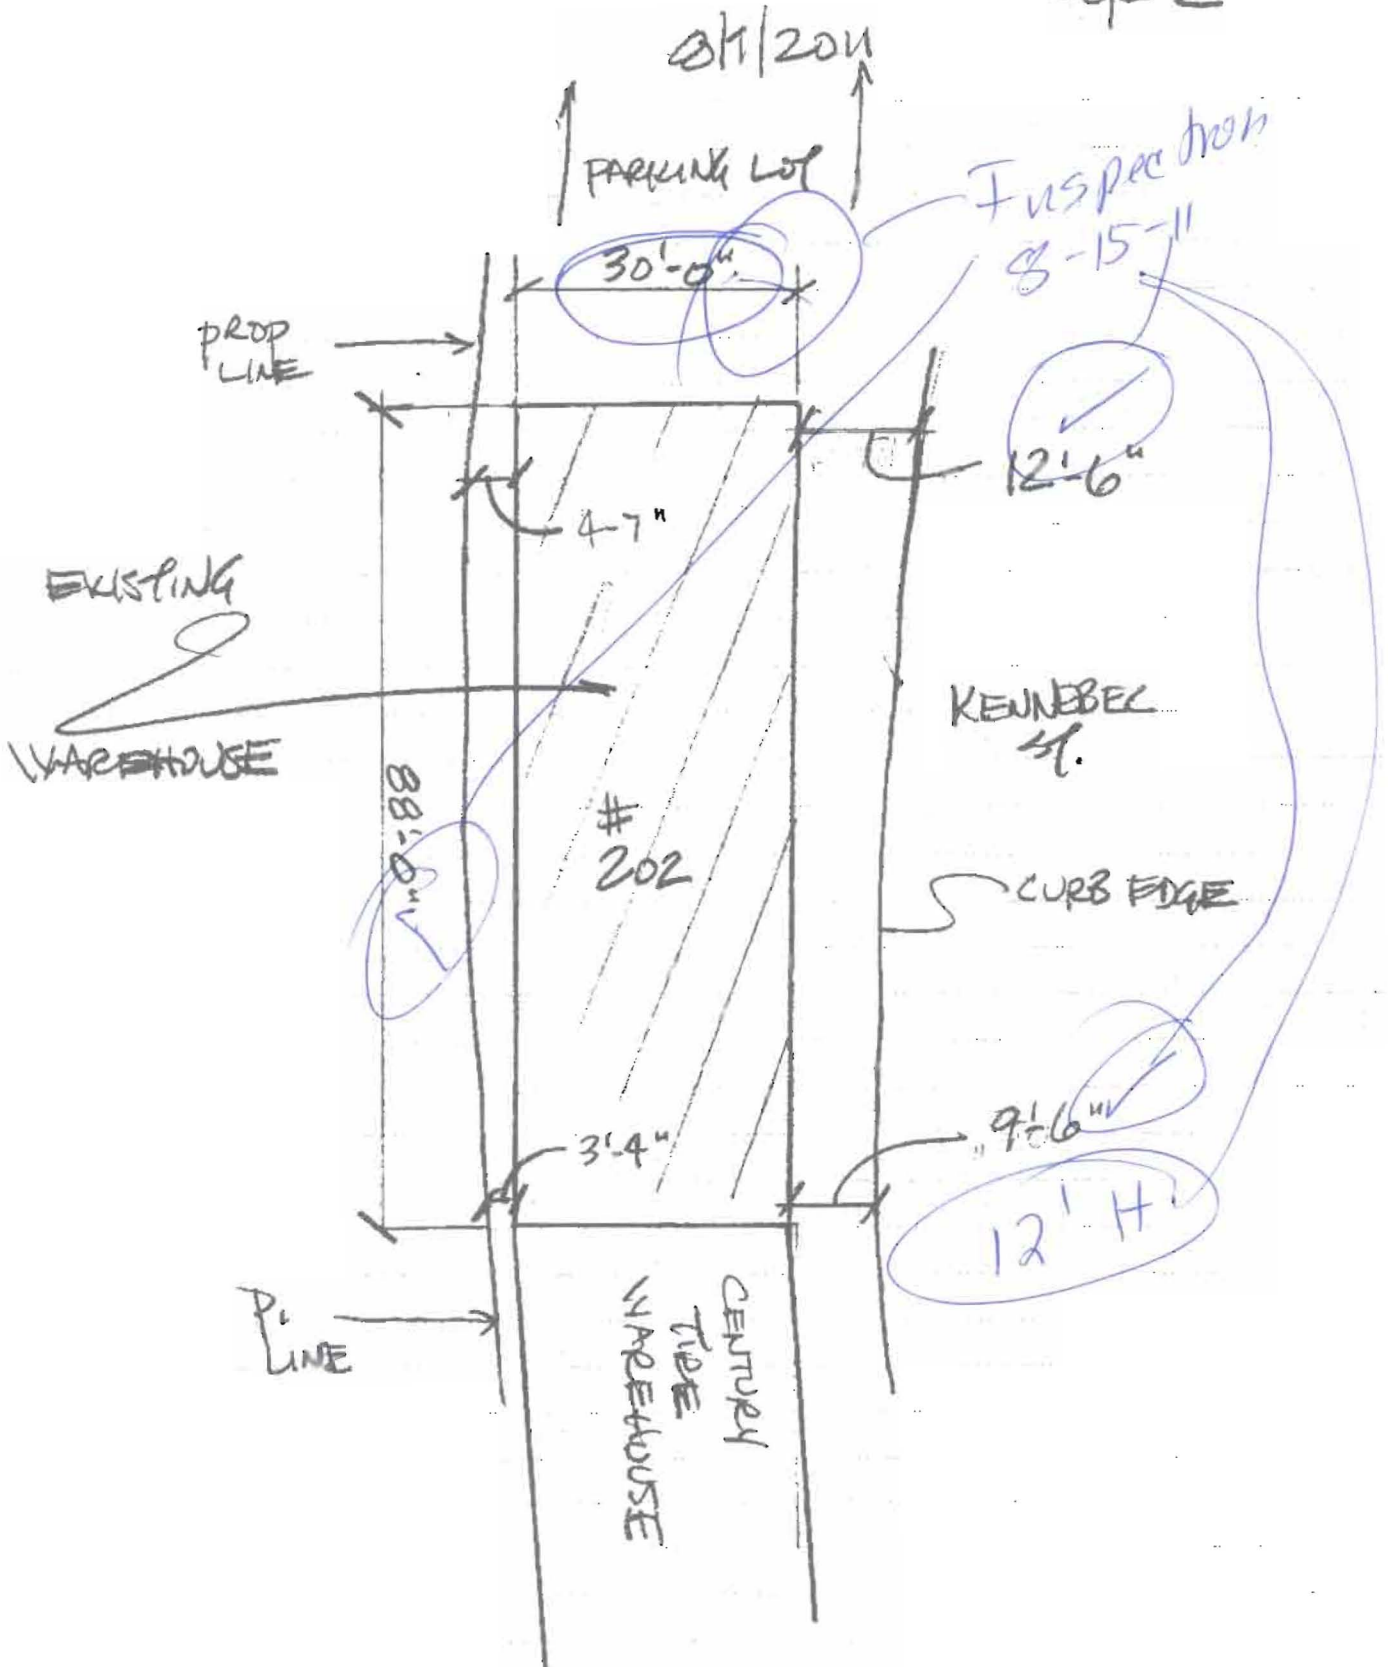 8/1/2011
PARKING LOT
Inspection
8-15-11
30'-0"
PROP
LINE
12'-6"
4-7"
EXISTING
WAREHOUSE
KENNEBEC
ST.
88'-0"
#
202
CURB EDGE
9'-6"
3'-4"
12' H
P.
LINE
CENTURY
TIRE
WAREHOUSE